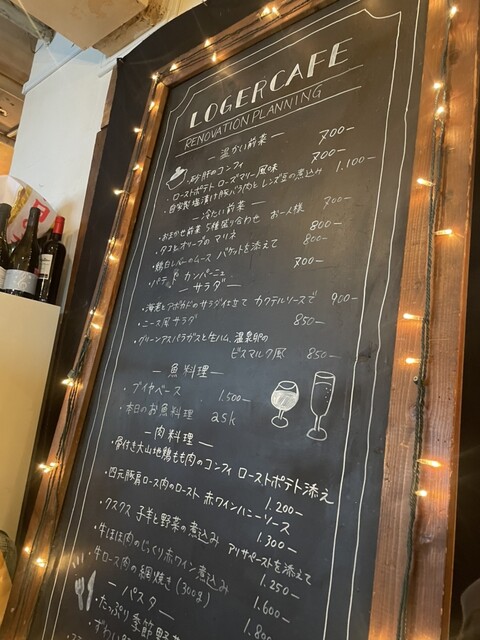 LOGERCAFE
RENOVATION PLANNING
— 温かい前菜 —
・砂肝のコンフィ 700-
・ローストポテト ローズマリー風味 700-
・自家製塩漬け豚バラ肉とレンズ豆の煮込み 1.100-
— 冷たい前菜 —
・おまかせ前菜5種盛り合わせ お一人様 700-
・タコとオリーブのマリネ 800-
・鶏白レバーのムース バケットを添えて 800-
・パテ ド カンパーニュ 700-
— サラダ —
・海老とアボカドのサラダ仕立て カクテルソースで 900-
・ニース風サラダ 850-
・グリーンアスパラガスと生ハム、温泉卵の
ビスマルク風 850-
— 魚料理 —
・ブイヤベース 1.500-
・本日のお魚料理 ask
— 肉料理 —
・骨付き大山地鶏もも肉のコンフィ ローストポテト添え
1.200-
・四元豚肩ロース肉のロースト 赤ワインハニーソース
1.300-
・クスクス 子羊と野菜の煮込み アリサペーストを添えて
1.250-
・牛ほほ肉のじっくり赤ワイン煮込み 1.600-
・牛ロース肉の網焼き(300g) 1.800
— パスタ —
・たっぷり季節野菜
・ずわい